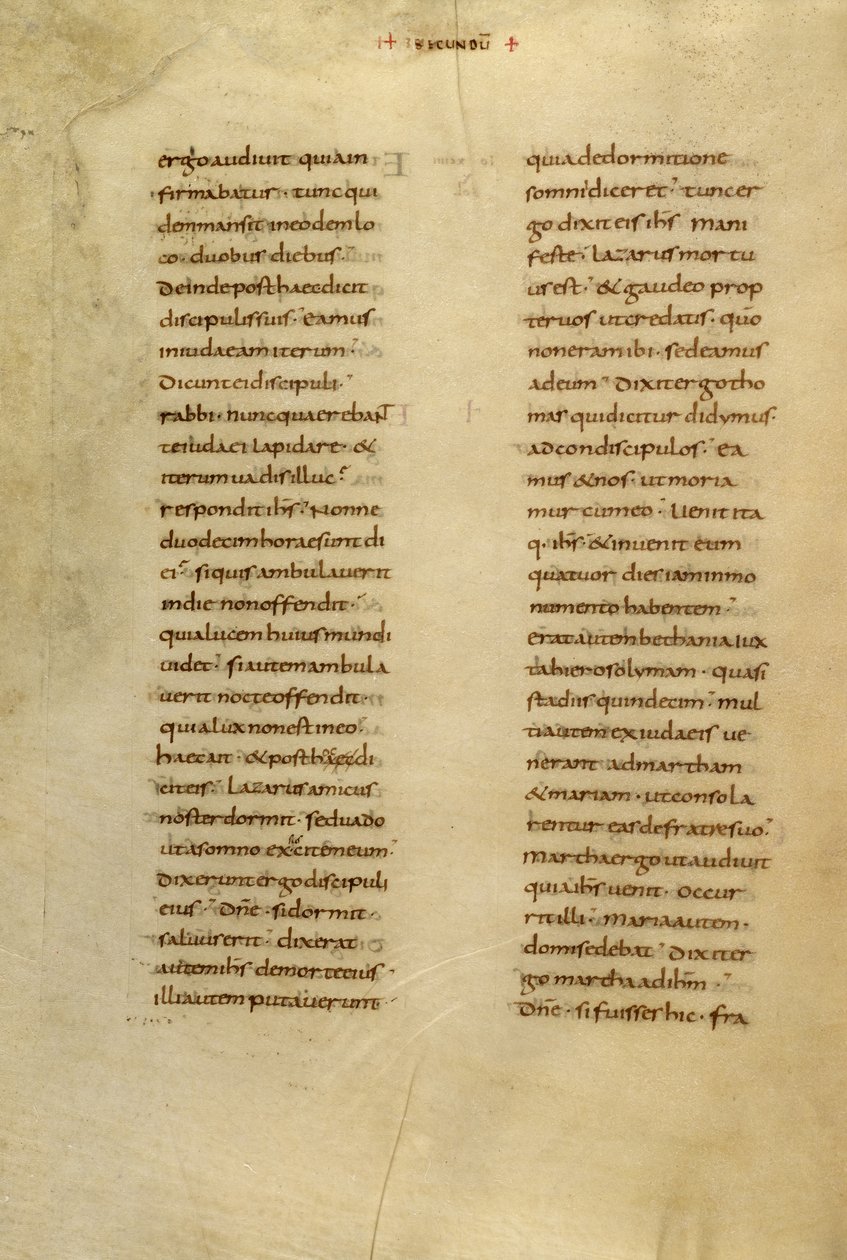 + SECUNDŪ +
ergo audivit quia in
firmabatur · tunc qui
dem mansit in eodem lo
co · duobus diebus ·
Deinde post haec dicit
discipulis suis · eamus
in iudaeam iterum ·
Dicunt ei discipuli ·
rabbi · nunc quaerebant
te iudaei lapidare · &
iterum vadis illuc ·
respondit ihs̄ · Nonne
duodecim horae sunt di
ei · si quis ambulaverit
in die non offendit ·
quia lucem huius mundi
videt · si autem ambula
verit nocte offendit ·
quia lux non est in eo ·
haec ait · & post haec di
cit eis · Lazarus amicus
noster dormit · sed vado
ut a somno excitem eum ·
Dixerunt ergo discipuli
eius · Dn̄e · si dormit ·
salvus erit · dixerat
autem ihs̄ de morte eius ·
illi autem putaverunt ·
quia de dormitione
somni diceret · tunc er
go dixit eis ihs̄ mani
feste · Lazarus mortu
us est · & gaudeo prop
ter vos ut credatis · quō
non eram ibi · sed eamus
ad eum · Dixit ergo tho
mas qui dicitur didymus ·
ad condiscipulos · ea
mus & nos · ut moria
mur cum eo · Venit ita
q · ihs̄ · & invenit eum
quatuor dies iam in mo
numento habentem ·
erat autem bethania iux
ta hierosolymam · quasi
stadiis quindecim · mul
ti autem ex iudaeis ve
nerant ad martham
& mariam · ut consola
rentur eas de fratre suo ·
Martha ergo ut audivit
quia ihs̄ venit · occur
rit illi · maria autem ·
domi sedebat · Dixit er
go martha ad ihm̄ ·
Dn̄e · si fuisses hic · fra